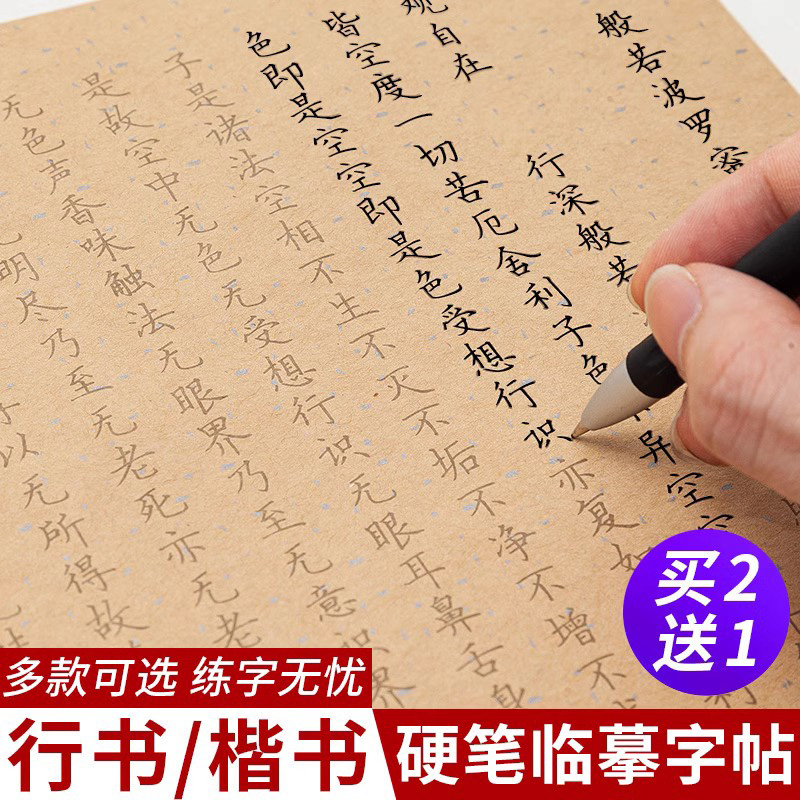 般若波罗蜜
观自在 行深般若
皆空度一切苦厄舍利子色 异空空
色即是空空即是色受想行识亦复如
子是诸法空相不生不灭不垢不净不增不
是故空中无色无受想行识无眼耳鼻舌身
无色声香味触法无眼界乃至无意识界
明尽乃至无老死亦无老
以无所得故
买2
送1
多款可选 练字无忧
行书/楷书 硬笔临摹字帖